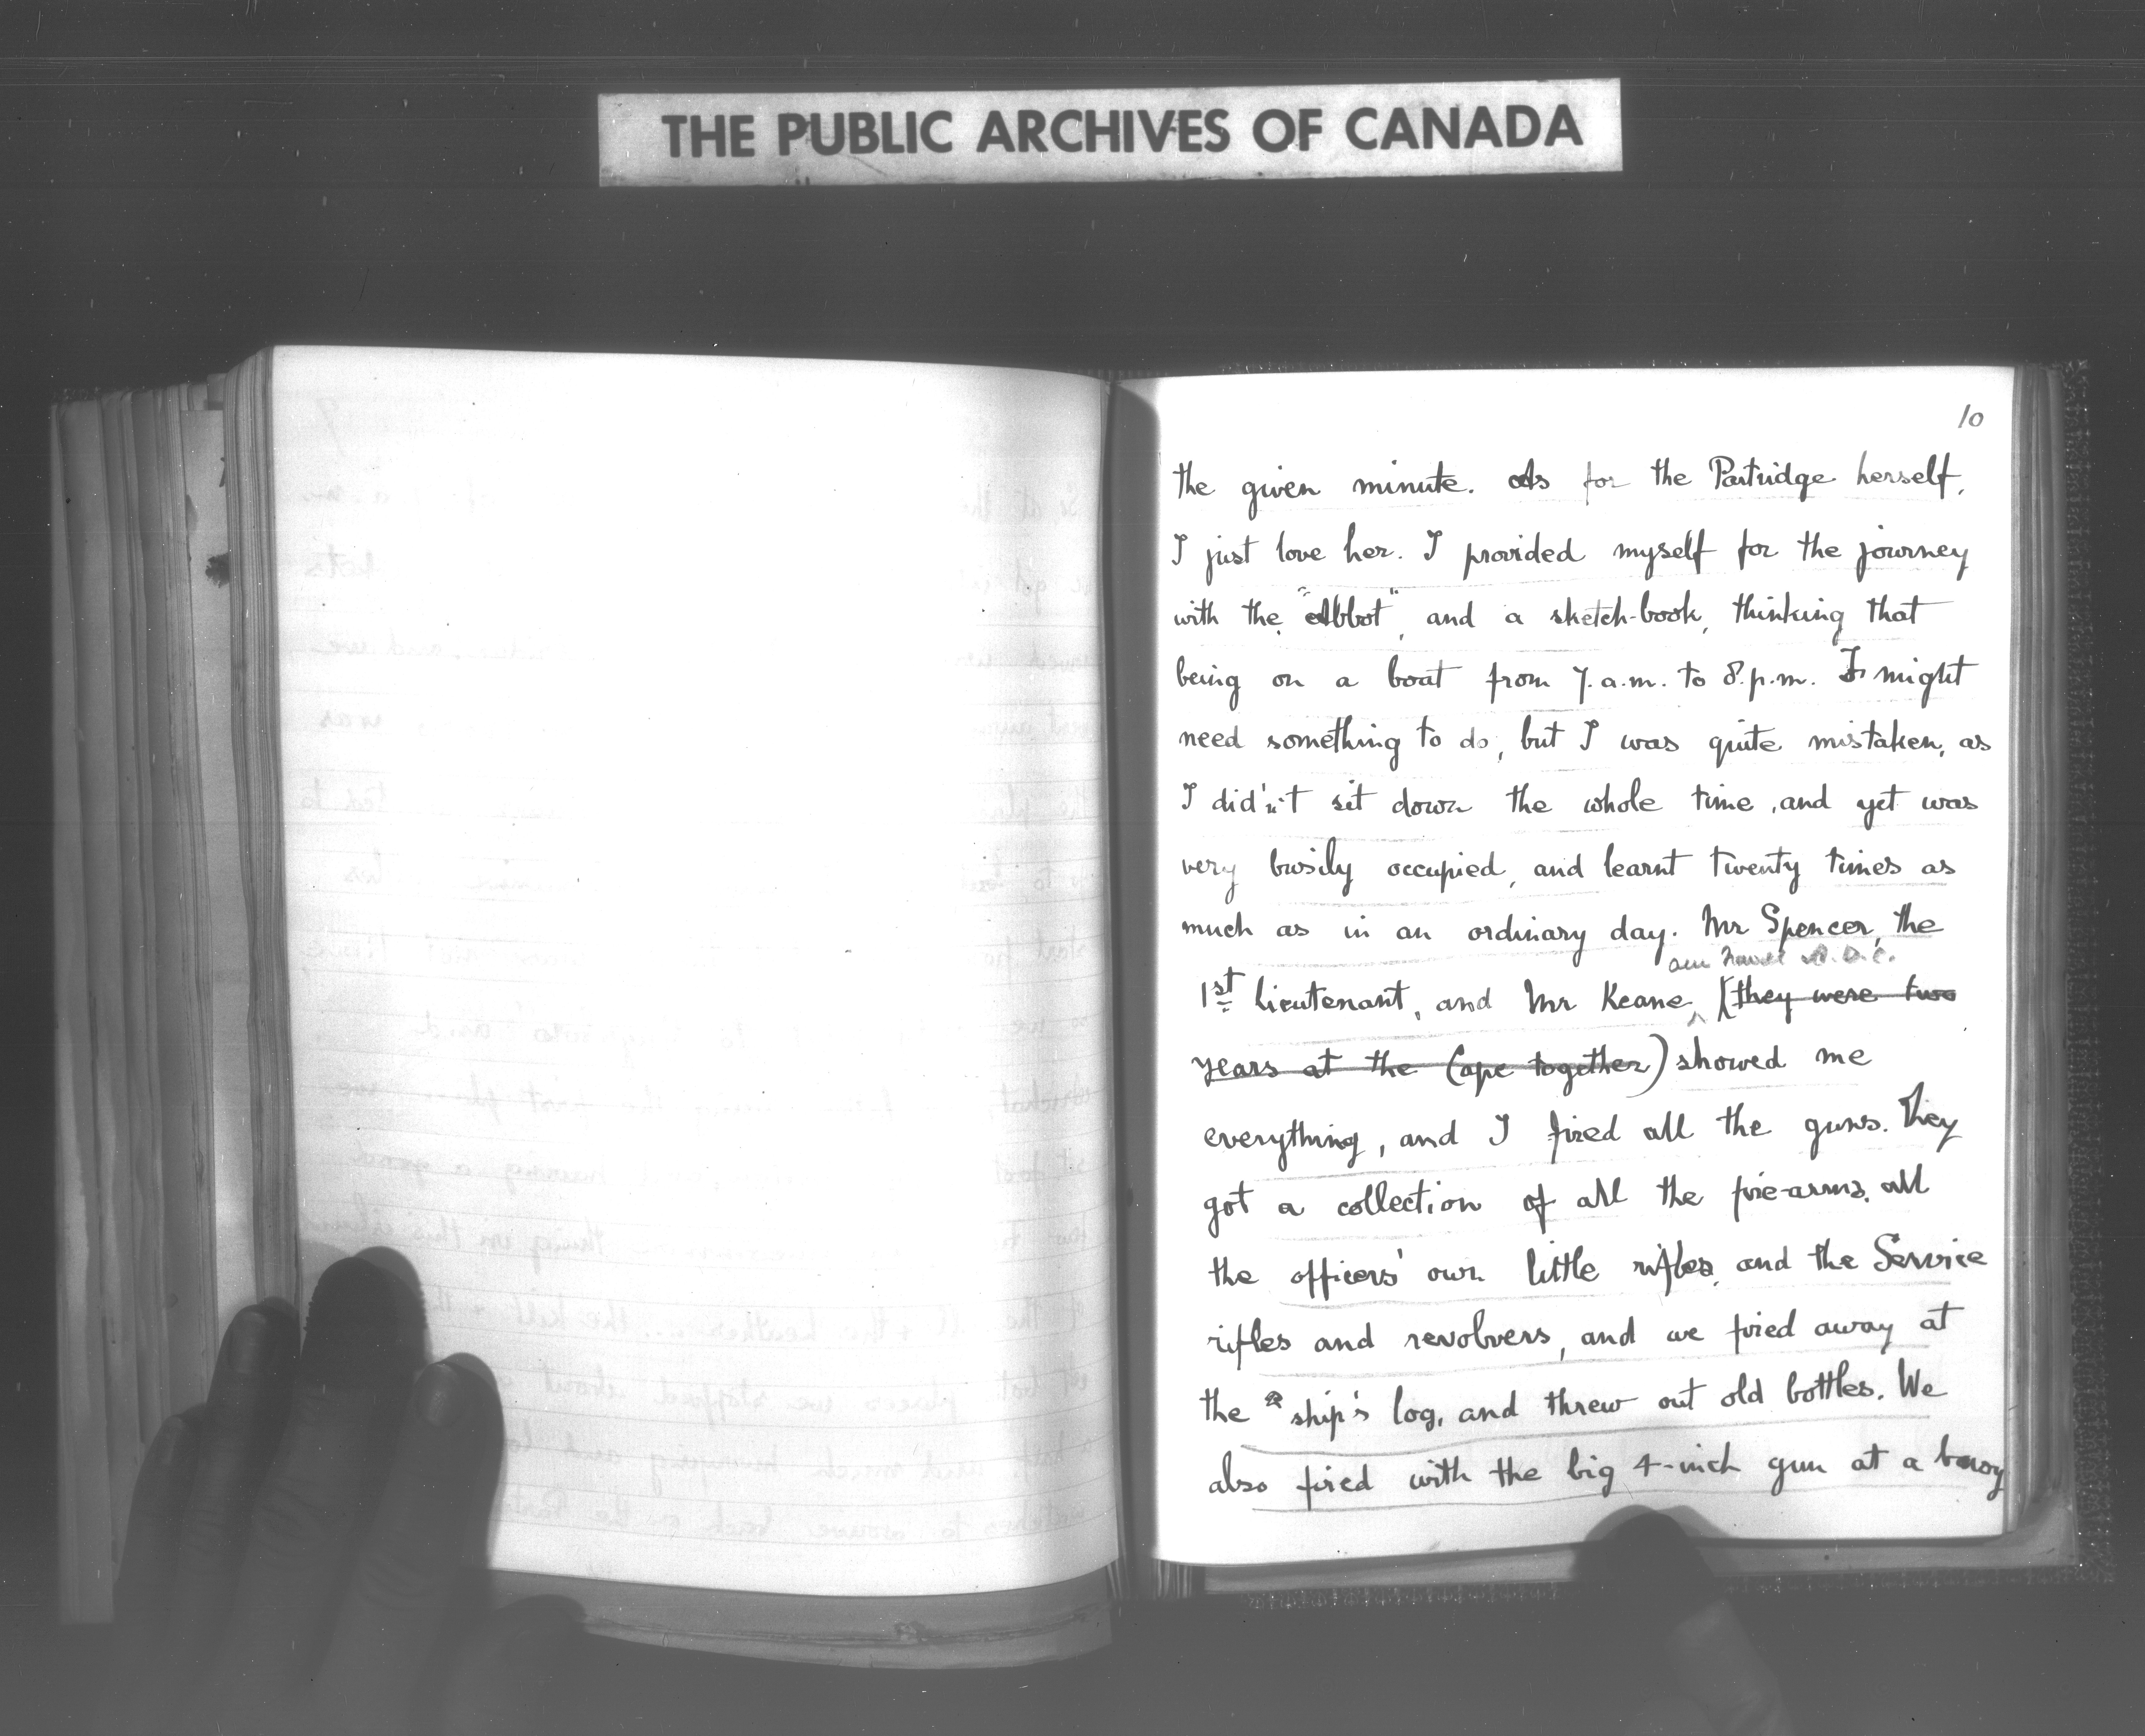 THE PUBLIC ARCHIVES OF CANADA
10
the given minute. As for the Partridge herself,
I just love her. I provided myself for the journey
with the "Abbot", and a sketch-book, thinking that
being on a boat from 7.a.m. to 8.p.m. I might
need something to do, but I was quite mistaken, as
I did'n't sit down the whole time, and yet was
very busily occupied, and learnt twenty times as
much as in an ordinary day. Mr Spencer, the
our Naval A.D.C.
1st Lieutenant, and Mr Keane, (they were two
years at the Cape together) showed me
everything, and I fired all the guns. They
got a collection of all the fire-arms, all
the officers' own little rifles, and the Service
rifles and revolvers, and we fired away at
the ship's log, and threw out old bottles. We
also fired with the big 4-inch gun at a buoy